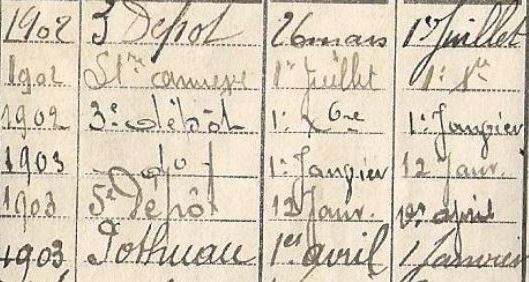 1902 3 Dépot 26 mars 1er Juillet
1902 1er Juillet 1: Xre
1902 3e dépôt 1: Xbre 1: Janvier
1903 do 1: Janvier 12 Janv.
1903 5e Dépôt 12 Janv. 1er avril
1903 Pothuau 1er avril 1 Janvier